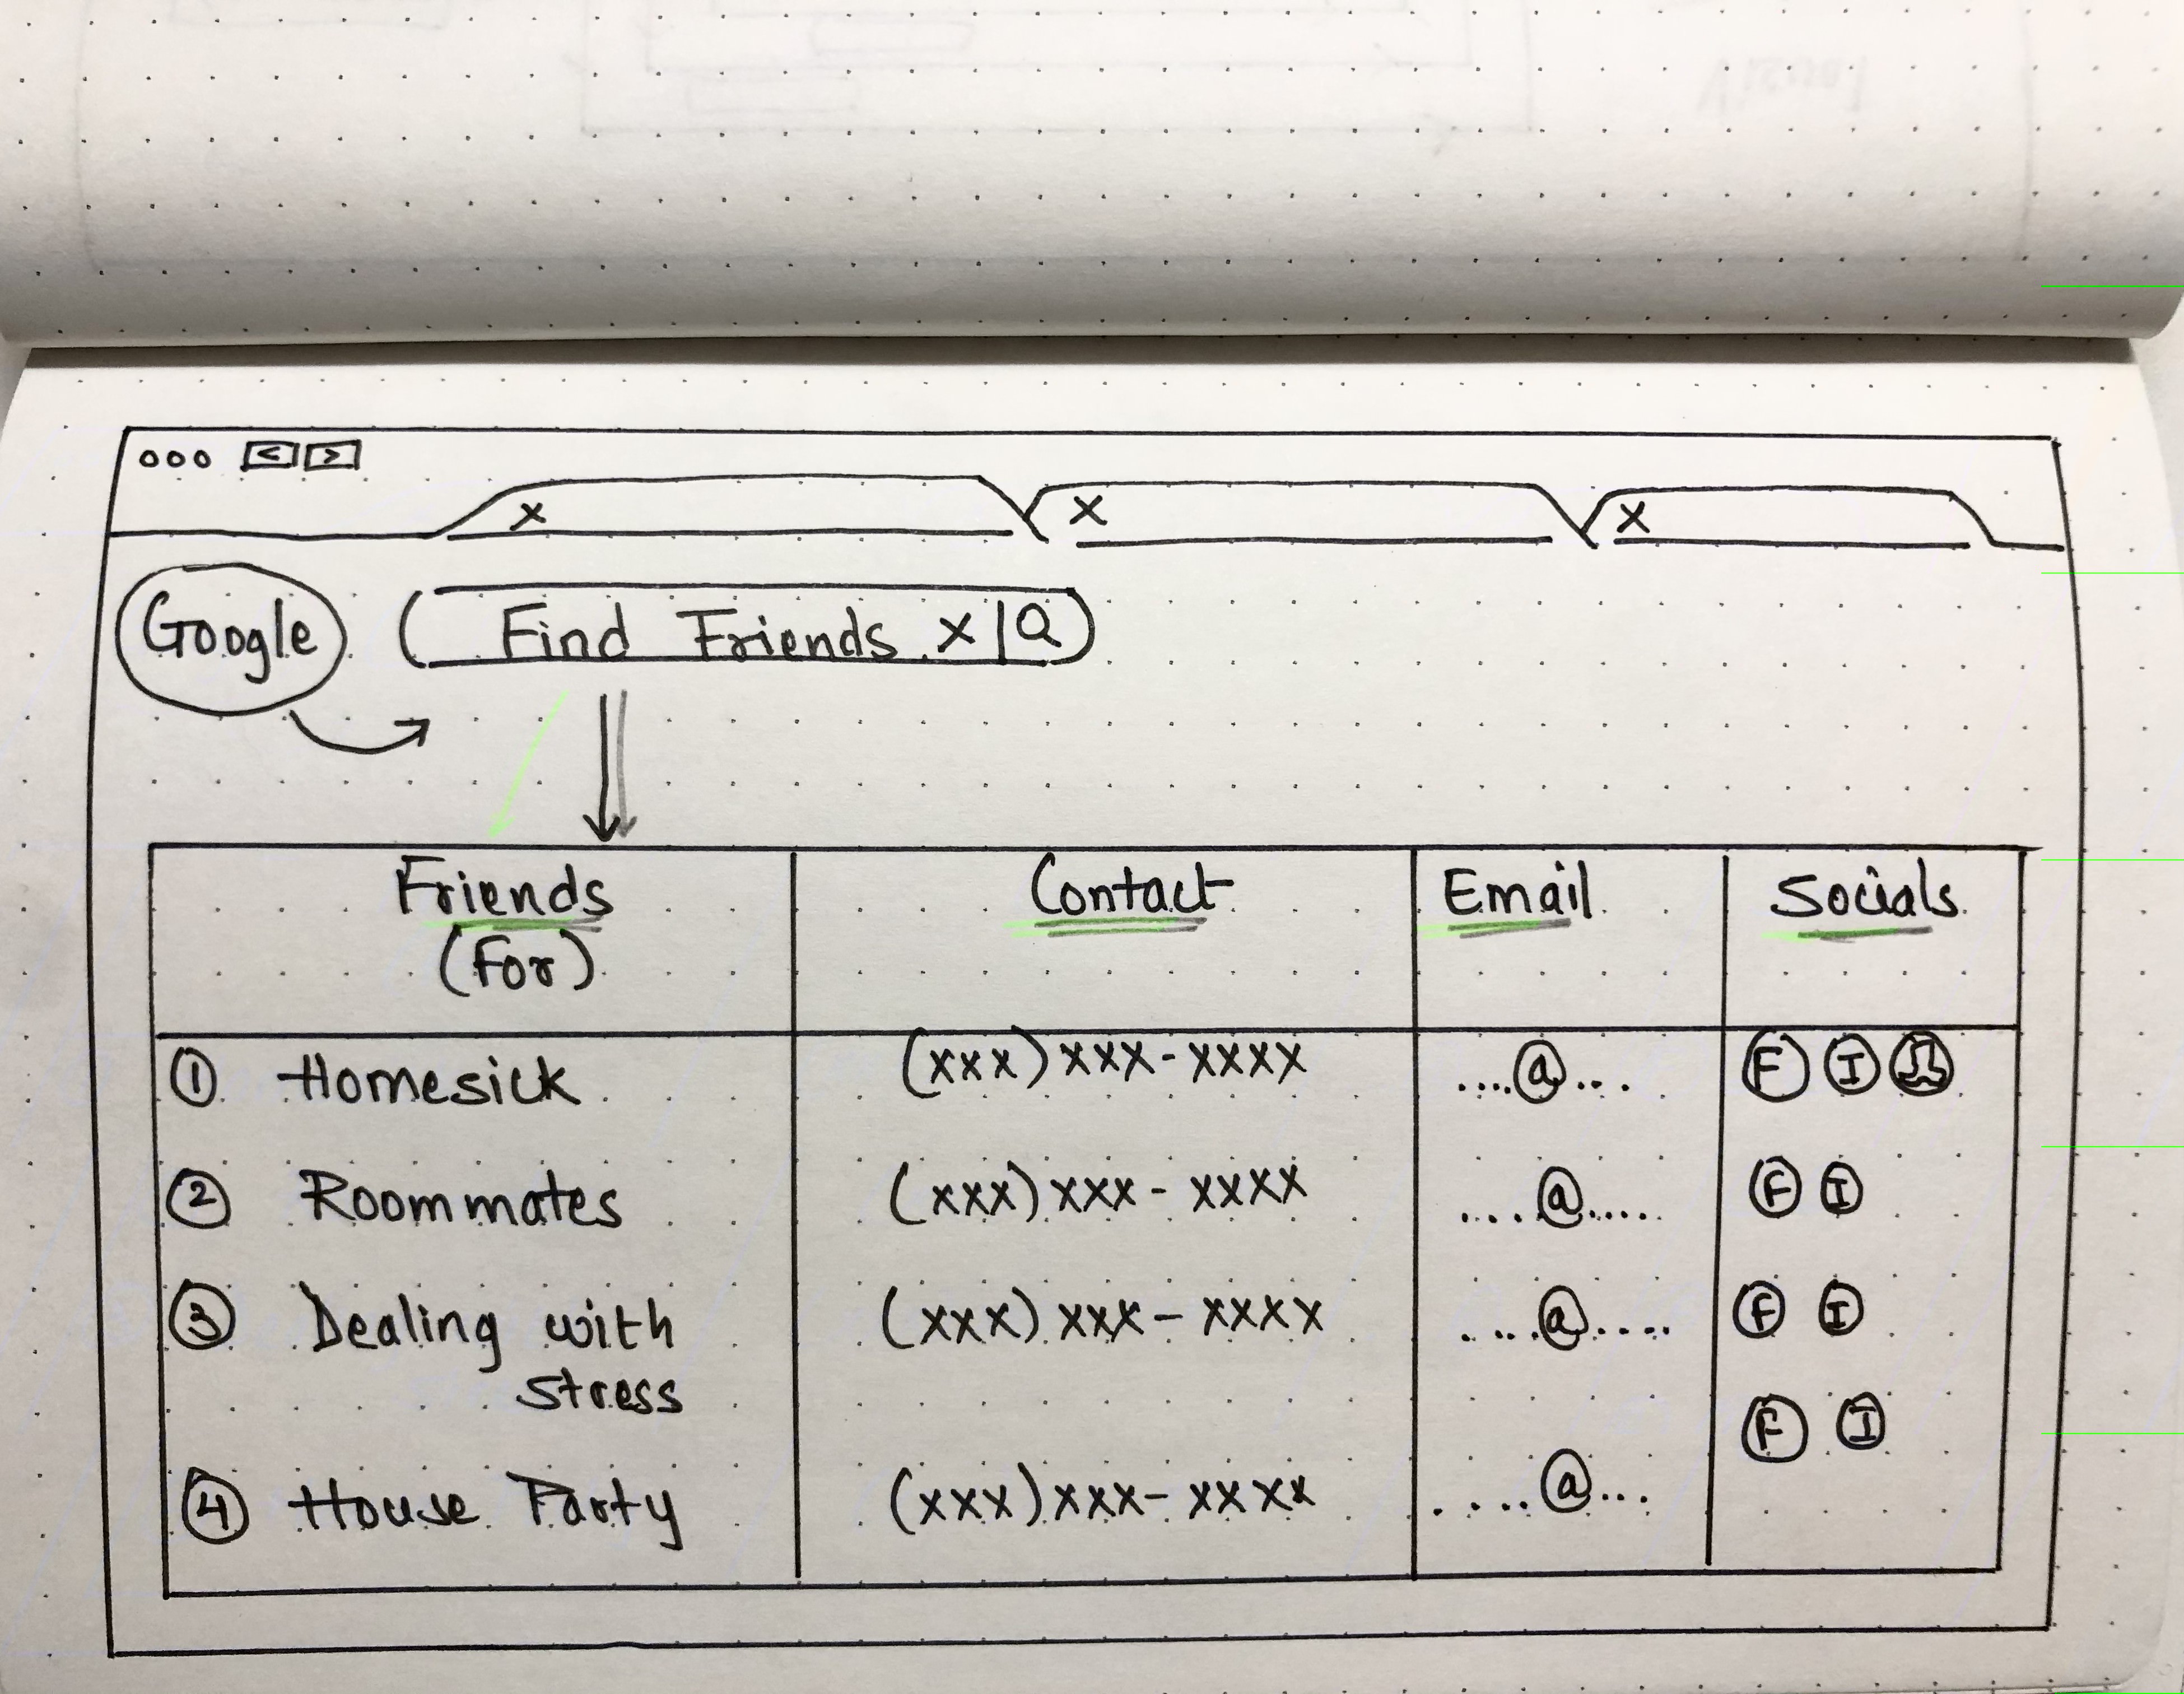 ooo < >
x x x
Google Find Friends x | Q
Friends Contact Email Socials
(For)
① Homesick (xxx) xxx-xxxx ....@... F I
② Roommates (xxx) xxx-xxxx ....@..... F I
③ Dealing with (xxx) xxx-xxxx ....@.... F I
stress
F I
④ House Party (xxx) xxx-xxxx ....@...